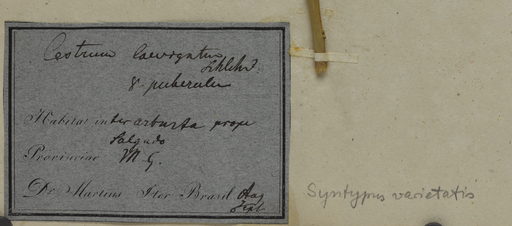 Cestrum laevigatum
Schlchd.
γ. puberulu
Habitat inter arbusta prope
Salgado
Provinciae M. G.
Dr. Martius Iter Brasil. Aug
Syntypus varietatis